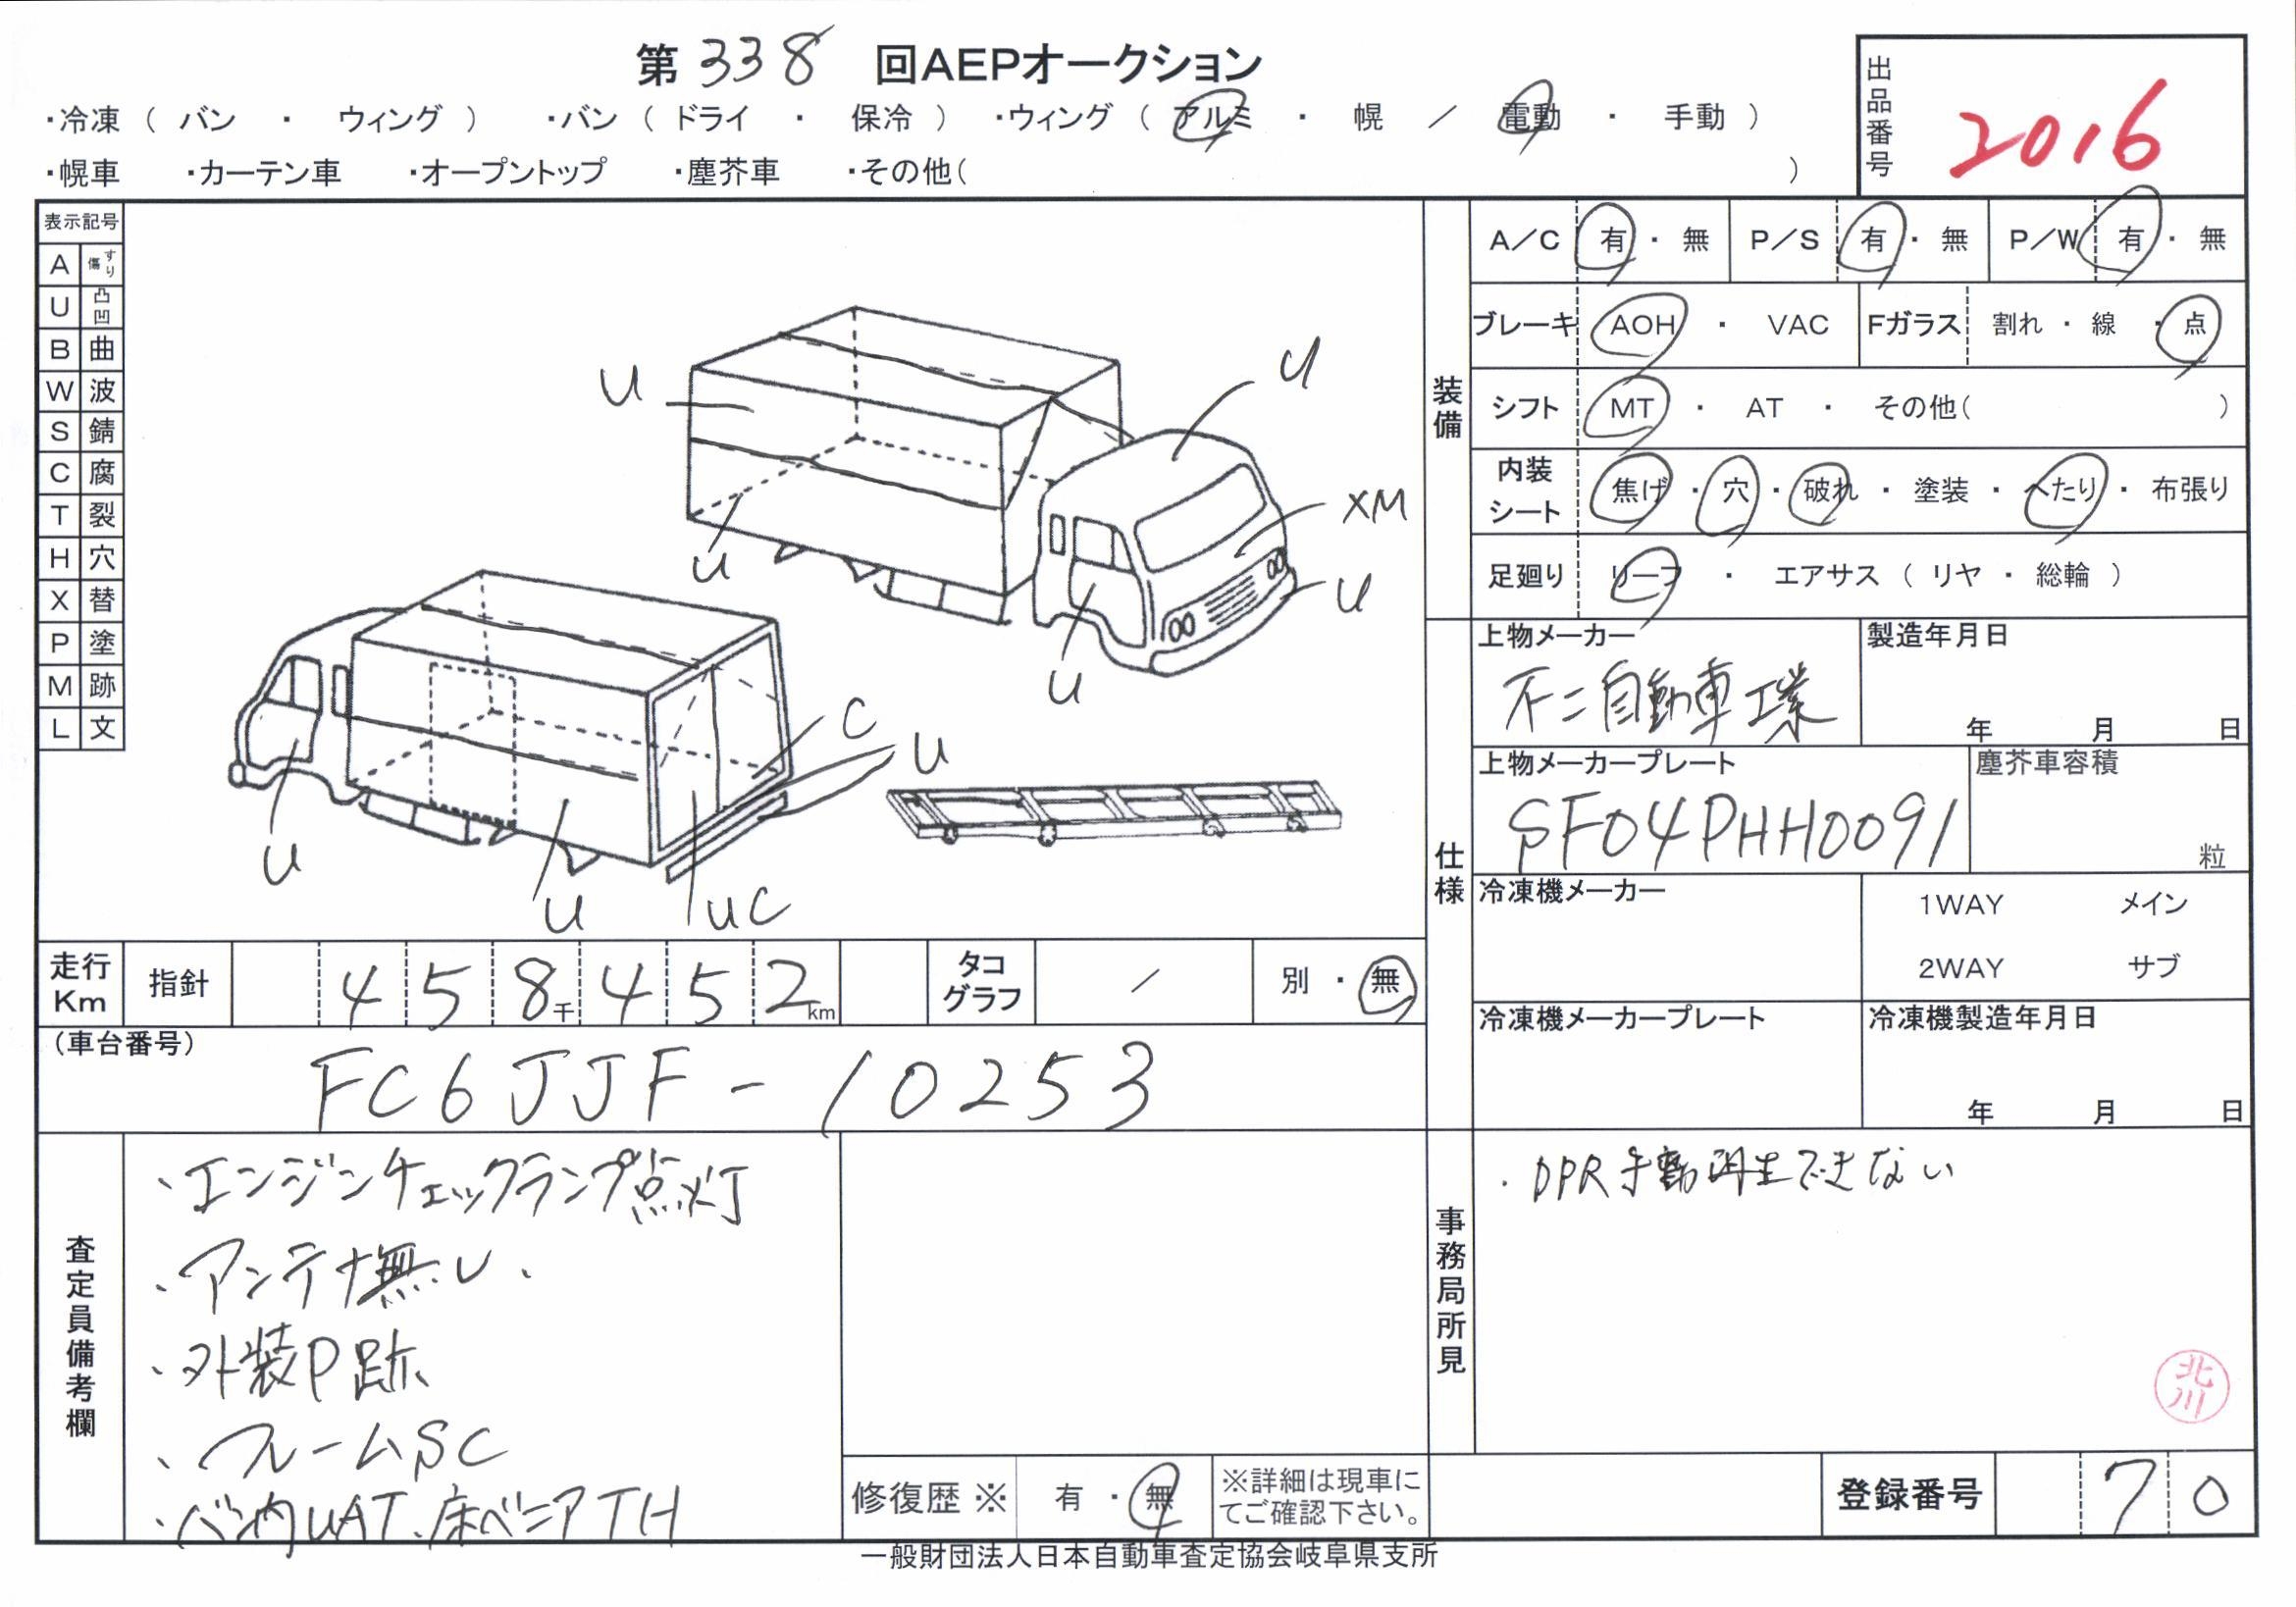 第338回AEPオークション
・冷凍（バン ・ ウィング） ・バン（ドライ ・ 保冷） ・ウィング（アルミ ・ 幌 ／ 電動 ・ 手動）
・幌車 ・カーテン車 ・オープントップ ・塵芥車 ・その他（ ）
出品番号 2016
表示記号
A すり傷
U 凸凹
B 曲
W 波
S 錆
C 腐
T 裂
H 穴
X 替
P 塗
M 跡
L 文
U
U
XM
U
U
U
C
U
U
U
UC
装備
A／C 有・無 P／S 有・無 P／W 有・無
ブレーキ AOH ・ VAC Fガラス 割れ・線・点
シフト MT ・ AT ・ その他（ ）
内装シート 焦げ・穴・破れ・塗装・へたり・布張り
足廻り リーフ ・ エアサス（リヤ・総輪）
仕様
上物メーカー 不二自動車工業
製造年月日 年 月 日
上物メーカープレート SF04PHH0091
塵芥車容積 粒
冷凍機メーカー
1WAY メイン
2WAY サブ
冷凍機メーカープレート
冷凍機製造年月日 年 月 日
走行Km 指針 458千452km タコグラフ ／ 別・無
（車台番号）
FC6JJF-10253
査定員備考欄
・エンジンチェックランプ点灯
・アンテナ無し．
・外装P跡
・フレームSC
・バン内UAT．床ベニアTH
修復歴※ 有・無 ※詳細は現車にてご確認下さい。
事務局所見
・DPR手動再生できない
北川
登録番号 70
一般財団法人日本自動車査定協会岐阜県支所